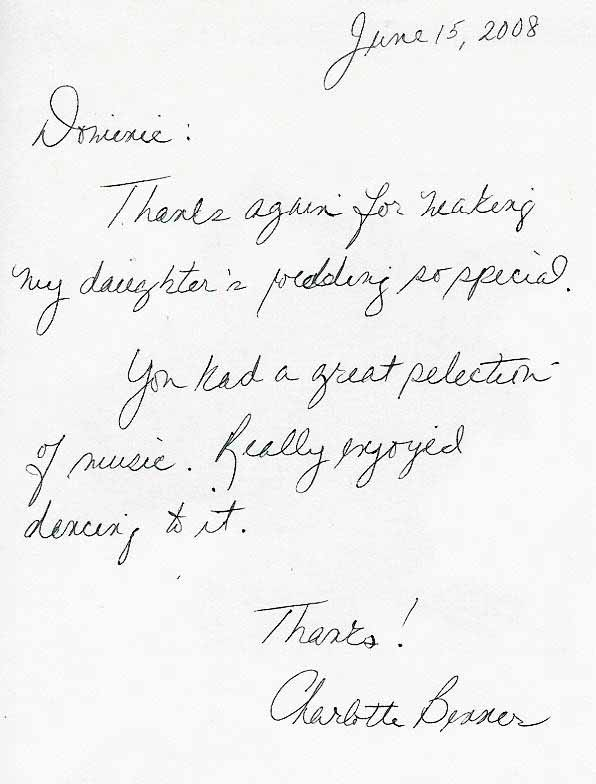 June 15, 2008
Dominic:
Thanks again for making
my daughter's wedding so special.
You had a great selection
of music. Really enjoyed
dancing to it.
Thanks!
Charlotte Benner